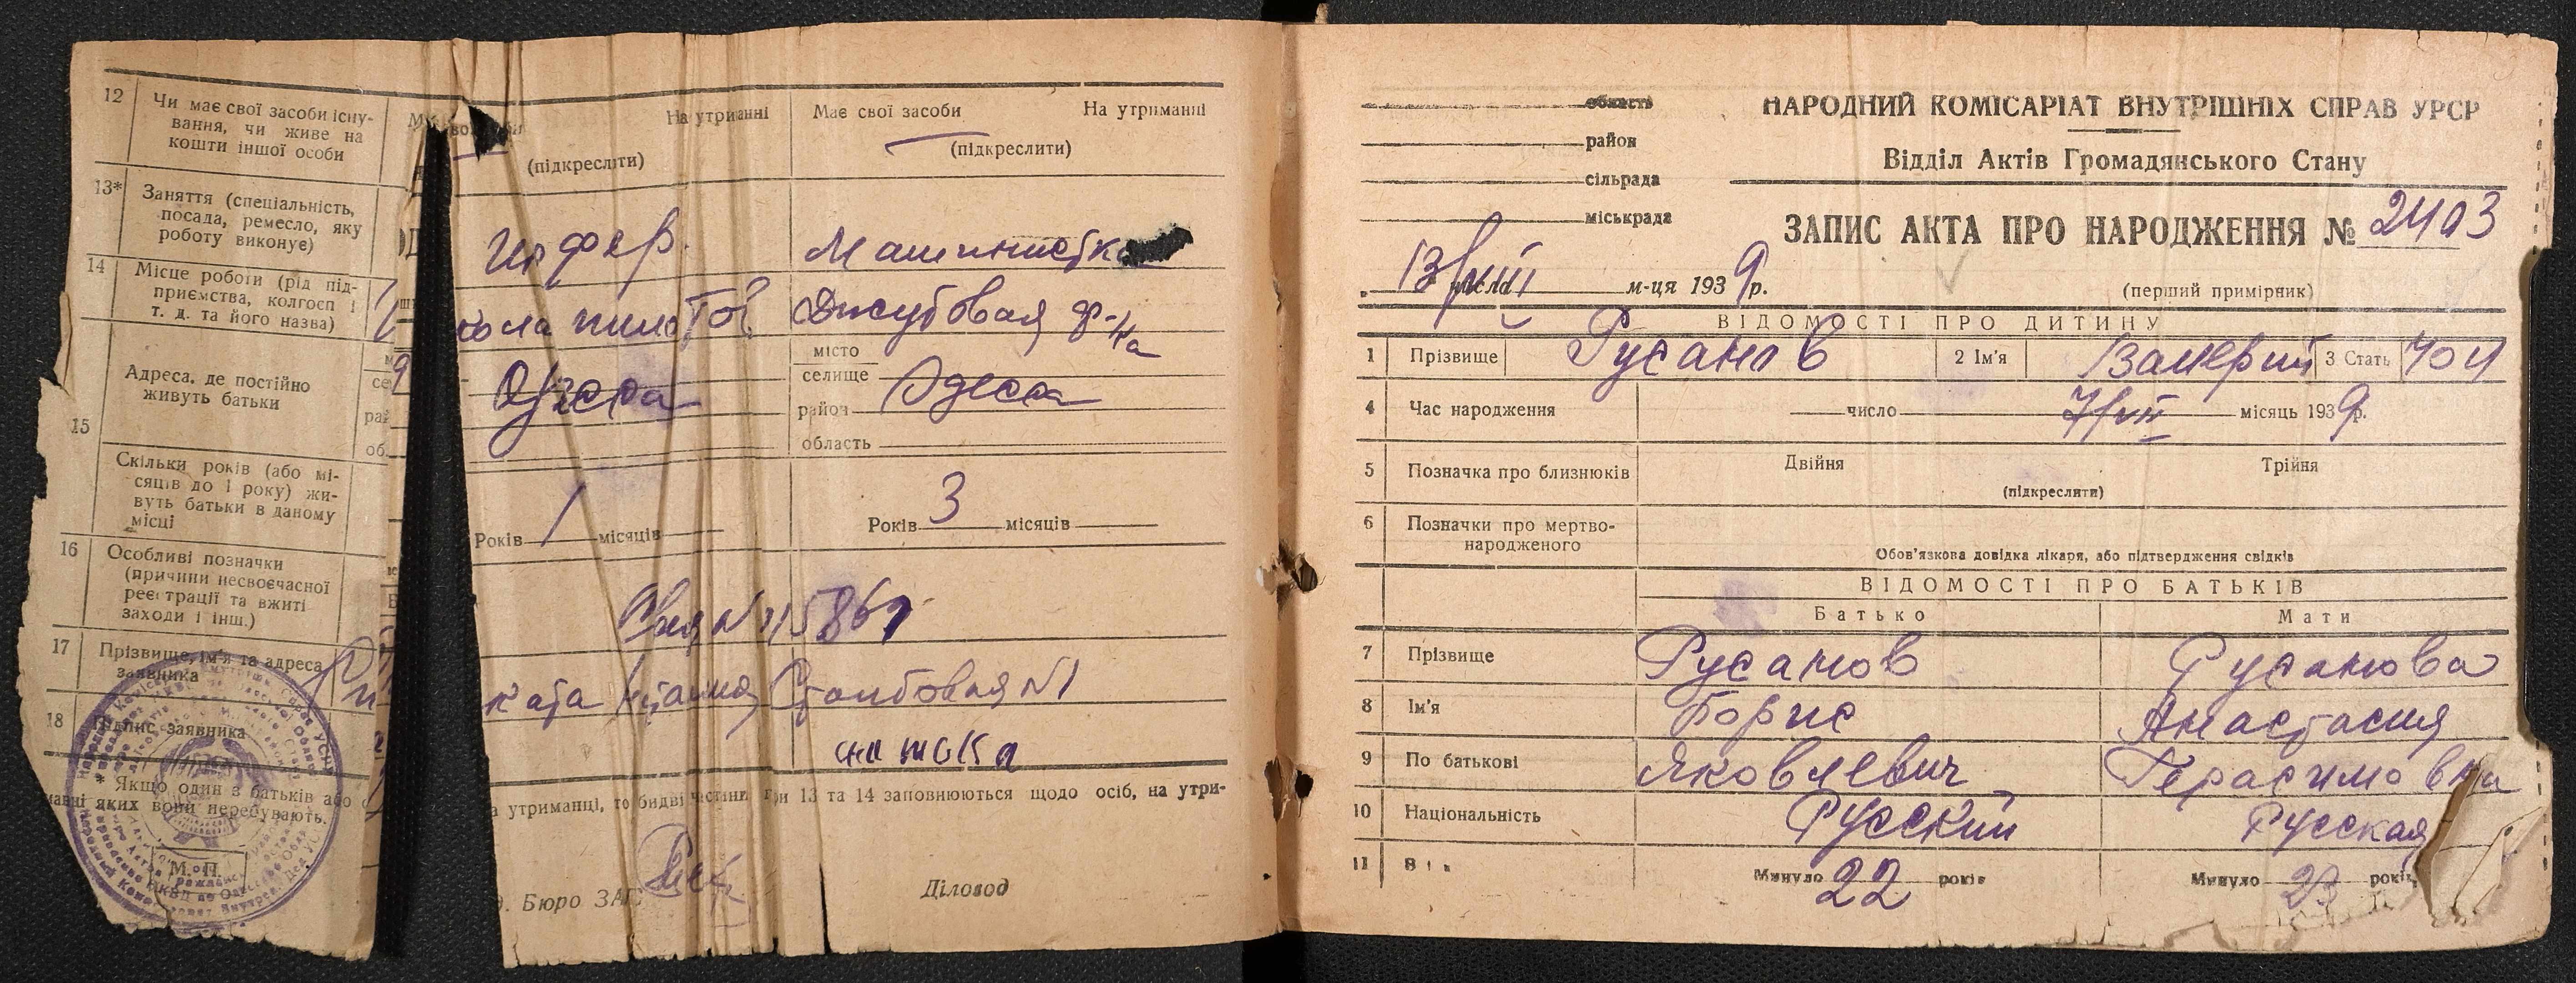 12 Чи має свої засоби існу-
вання, чи живе на
кошти іншої особи
На утриманні
(підкреслити)
Має свої засоби На утриманні
(підкреслити)
13* Заняття (спеціальність,
посада, ремесло, яку
роботу виконує)
Машинистка
14 Місце роботи (рід під-
приємства, колгосп і
т. д. та його назва)
Джутовая ф-ка
15 Адреса, де постійно
живуть батьки
Одесса
місто
селище
район Одесса
область
Скільки років (або мі-
сяців до 1 року) жи-
вуть батьки в даному
місці
Років 1 місяців
Років 3 місяців
16 Особливі позначки
(причини несвоєчасної
реєстрації та вжиті
заходи і інш.)
17 Прізвище, ім'я та адреса
заявника
Столбовая №1
18 Підпис заявника
* Якщо один з батьків або
яких вони перебувають.
утриманні, то обидві частини 13 та 14 заповнюються щодо осіб, на утри-
М. П.
Бюро ЗАГ
Діловод
область
район
сільрада
міськрада
НАРОДНИЙ КОМІСАРІАТ ВНУТРІШНІХ СПРАВ УРСР
Відділ Актів Громадянського Стану
ЗАПИС АКТА ПРО НАРОДЖЕННЯ № 2403
13/VIII числа м-ця 1939 р.
(перший примірник)
ВІДОМОСТІ ПРО ДИТИНУ
1 Прізвище Русанов 2 Ім'я Валерий 3 Стать чол
4 Час народження число 7/VIII місяць 1939 р.
5 Позначка про близнюків Двійня Трійня
(підкреслити)
6 Позначки про мертво-
народженого
Обов'язкова довідка лікаря, або підтвердження свідків
ВІДОМОСТІ ПРО БАТЬКІВ
Батько Мати
7 Прізвище Русанов Русанова
8 Ім'я Борис Анастасия
9 По батькові Яковлевич Герасимовна
10 Національність Русский Русская
11 Вік Минуло 22 років Минуло 23 років